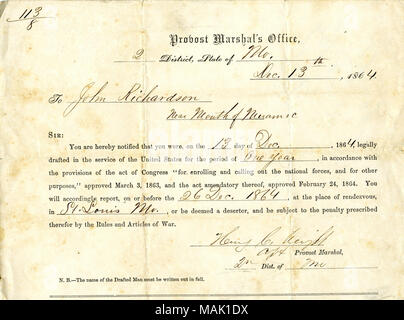 113
8
Provost Marshal's Office,
2 District, State of Mo.
Dec. 13th, 1864.
To John Richardson
Near Mouth of Meramec
SIR:
You are hereby notified that you were, on the 13 day of Dec., 1864, legally
drafted in the service of the United States for the period of One Year, in accordance
with the provisions of the act of Congress "for enrolling and calling out the national forces, and for
other purposes," approved March 3, 1863, and the act amendatory thereof, approved February 24, 1864. You
will accordingly report, on or before the 26 Dec. 1864, at the place of rendezvous,
in St. Louis Mo., or be deemed a deserter, and be subject to the penalty prescribed
therefor by the Rules and Articles of War.
Capt Provost Marshal,
2nd Dist. of Mo
N. B.—The name of the Drafted Man must be written out in full.
alamy
Image ID: MAK1DX
www.alamy.com